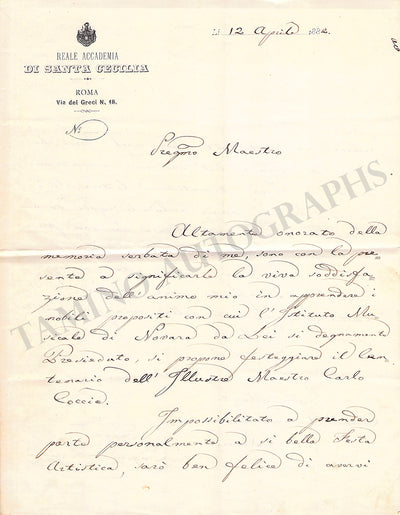 li 12 Aprile 1882.
REALE ACCADEMIA
DI SANTA CECILIA
ROMA
Via dei Greci N. 18.
N.
Pregmo Maestro
Altamente onorato della
memoria serbata di me, sono con la pre
sente a significarle la viva soddisfa
zione dell'animo mio in apprendere i
nobili propositi con cui l'Istituto Mu
sicale di Novara da Lei si degnamente
Presieduto, si propone festeggiare il Cen
tenario dell'Illustre Maestro Carlo
Coccia.
Impossibilitato a prender
parte personalmente a si bella Festa
Artistica, sarò ben felice di avervi
TAMINO AUTOGRAPHS